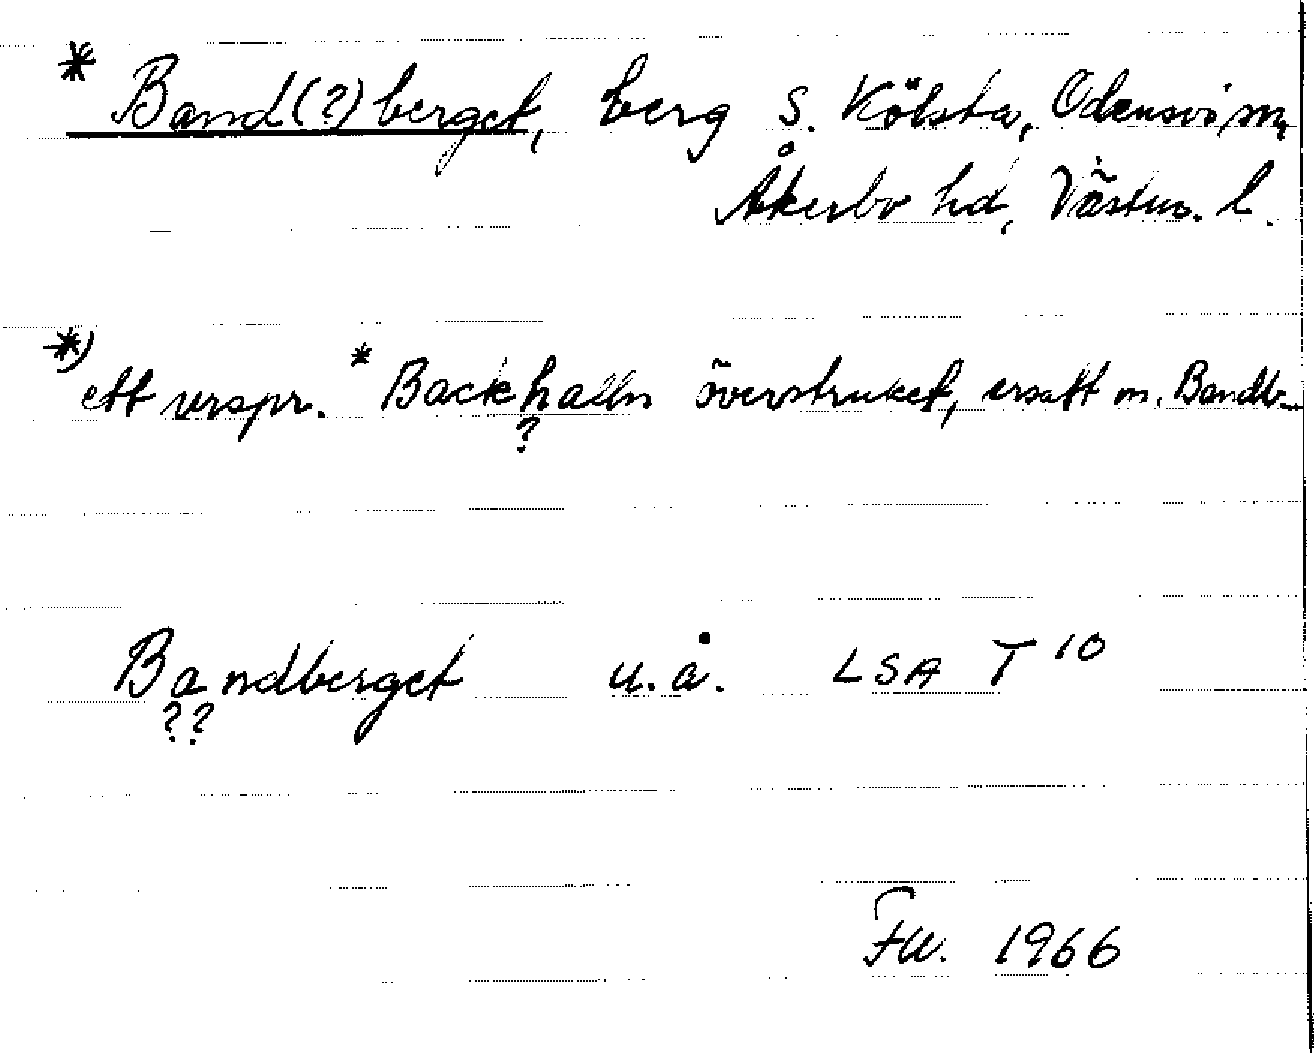 * Band(?)berget, berg S. Kölsta, Odensvi sn,
Åkerbo hd, Västm. l.
*) ett urspr. * Backhalln överstruket, ersatt m. Bandb-
?
Bandberget u.å. LSA T 10
??
1966